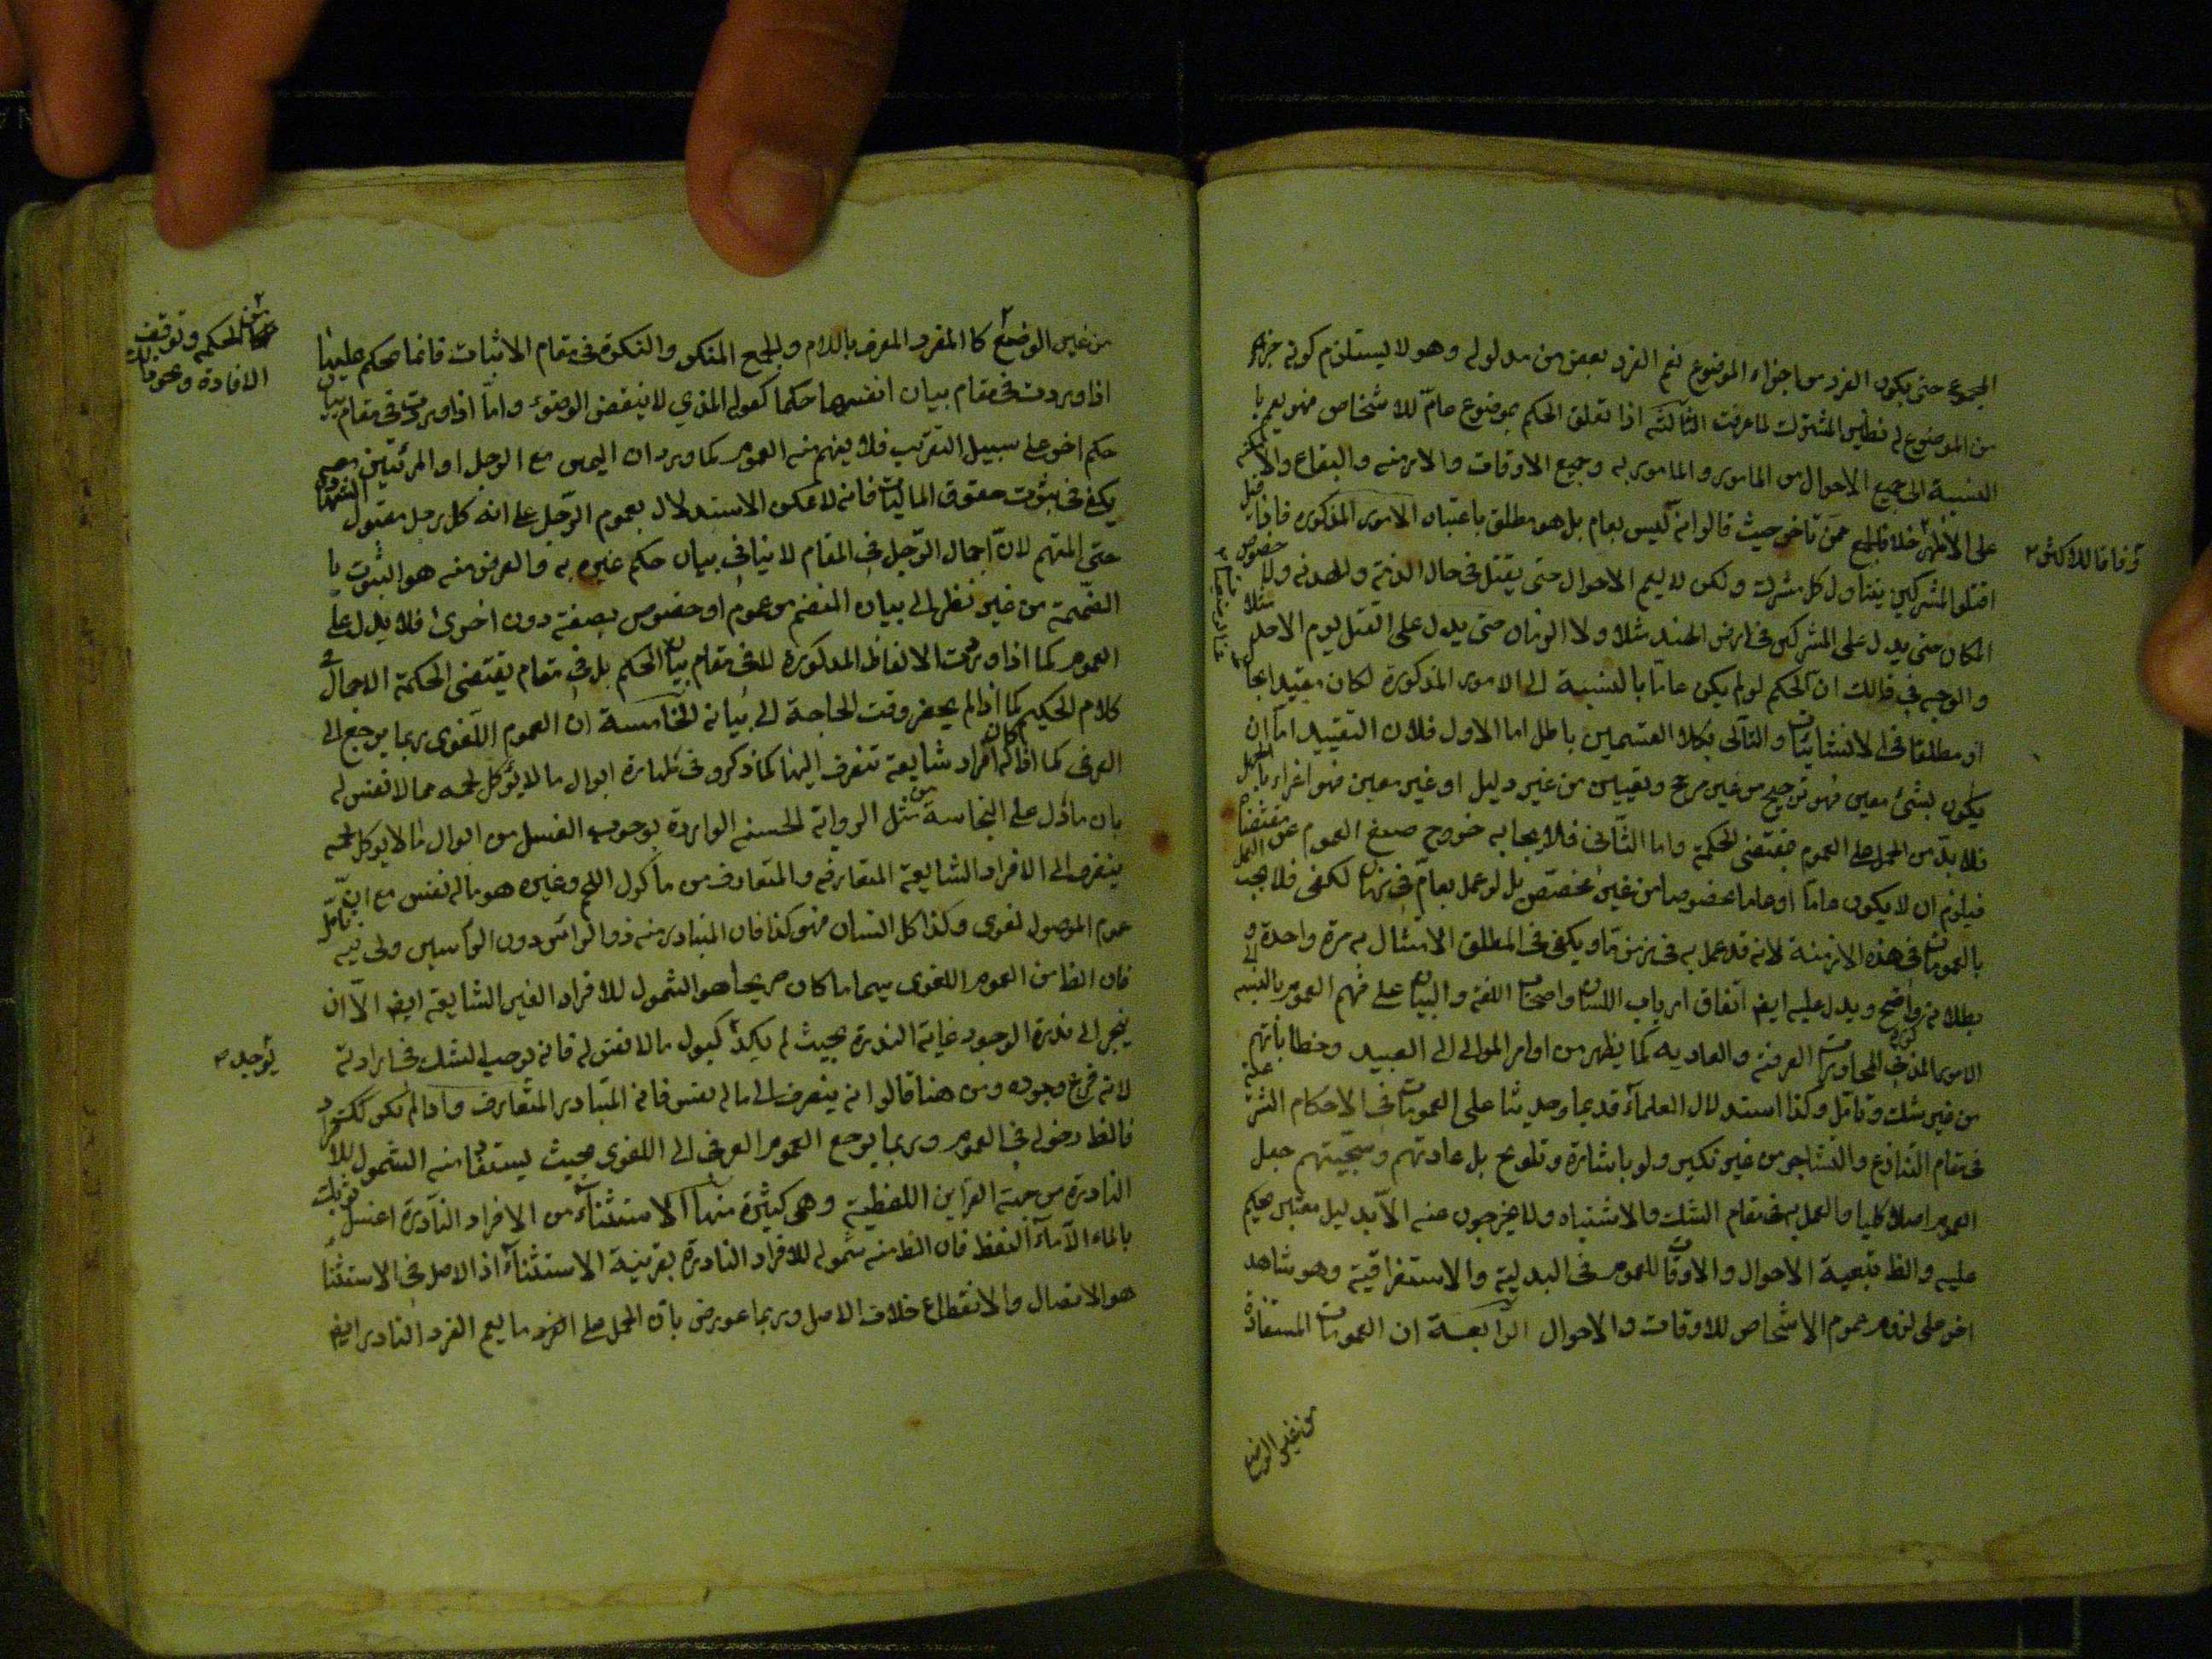 المجموع حتى يكون الفرد من اجزاء الموضوع نعم الفرد بعض من مدلوله وهو لا يستلزم كونه جزء
من الموضوع له نظير المشترك لما عرفت الثالثة اذا تعلق الحكم بموضوع عام للاشخاص فهو يعم با
لنسبة الى جميع الاحوال من المامور والمامور به وجميع الاوقات والازمنه والبقاع والامكنه
على الاظهر خلافا لجمع ممن تاخر حيث قالوا انه ليس بعام بل هو مطلق باعتبار الامور المذكوره فاذا قيل
اقتلوا المشركين يتناول كل مشرك ولكن لا يعم الاحوال حتى يقتل في حال الذمة والهدنه ولا خصوص
المكان حتى يدل على المشركين في ارض الهند مثلا ولا الزمان حتى يدل على القتل يوم الاحد مثلا
والوجه في ذالك ان الحكم لو لم يكن عاما بالنسبة الى الامور المذكورة لكان مقيدا بها
او مطلقا في الانشائيات والتالى بكلا القسمين باطل اما الاول فلان التقييد اما ان
يكون بشئ معين فهو ترجيح من غير مرجح وتعيين من غير دليل او غير معين فهو اغراء بالجهل
فلا بد من الحمل على العموم بمقتضى الحكمة واما الثانى فلايجابه خروج صيغ العموم عن مقتضاه
فيلزم ان لا يكون عاما او عاما مخصوصا من غير مخصص بل لو عمل بعام في زمان لكفى فلا يجب العمل
بالعمومات في هذه الازمنة لانه قد عمل به في زمن ما ويكفى في المطلق الامتثال به مرة واحدة و
بطلانه واضح ويدل عليه ايضا اتفاق ارباب اللسان واصحاب اللغة والبيان على فهم العموم بالنسبه الى
الامور المذكورة في المحاورات العرفية والعاديه كما يظهر من اوامر الموالى الى العبيد وخطاباتهم
من غير شك وتامل وكذا استدلال العلماء قديما وحديثا على العمومات في الاحكام الشرعية
في مقام التنازع والتشاجر من غير نكير ولو باشارة وتلويح بل عادتهم وسجيتهم جعل
العموم اصلا كليا والعمل به في مقام الشك والاشتباه ولا يخرجون عنه الا بدليل معتبر حكيم
عليه والظ تبعية الاحوال والاوقات للعموم في البدلية والاستغراقية وهو شاهد
اخر على لزوم عموم الاشخاص للاوقات والاحوال الرابعة ان العمومات المستفادة
من غير الوضع
وفاقا للاكثر
من غير الوضع كالمفرد المعرف باللام والجمع المنكر والنكرة في مقام الاثبات فانما يحكم عليها
اذا وردت في مقام بيان انفسها حكما كقوله المذي لا ينقض الوضوء واما اذا وردت في مقام بيان
حكم اخر على سبيل التقريب فلا يفهم منه العموم كما ورد ان اليمين مع الرجل او المرئتين معه
يكفى في ثبوت حقوق الماليات فانه لا يمكن الاستدلال بعموم الرجل على انه كل رجل مقبول الشهادة
حتى المتهم لان اجمال الرجل في المقام لا ينافى بيان حكم غيره به والغرض منه هو الثبوت با
لضميمة من غير نظر الى بيان المنضم من عموم او خصوص بصفة دون اخرى فلا يدل على
العموم كما اذا وردت الالفاظ المذكورة لا في مقام بيان الحكم بل في مقام يقتضى الحكمة الاجمال في
كلام الحكيم كما اذا لم يحضر وقت الحاجة الى بيانه الخامسة ان العموم اللغوى ربما يرجع الى
العرفى كما اذا كان له افراد شايعة تنصرف اليها كما ذكروا في طهارة ابوال ما لا يؤكل لحمه مما لا نفس له
بان ما دل على النجاسة من مثل الرواية الحسنه الواردة بوجوب الغسل من ابوال ما لا يوكل لحمه
ينصرف الى الافراد الشايعة المتعارفه والمتعارف من ماكول اللحم وغيره هو ماله نفس مع ان
عموم الموصول لغوى وكذا كل انسان فهو كذا فان المتبادر منه ذو الراس دون الرأسين ولى فيه تامل
فان الظ من العموم اللغوى سيما ما كان صريحا هو الشمول للافراد الغير الشايعة ايضا الا ان
ينجر الى ندرة الوجود غاية الندرة بحيث لم يكد كبول ما لا نفس له فانه يوجب الشك في ارادته
لانه فرع وجوده ومن هنا قالوا انه ينصرف الى ما له نفس فانه المتبادر المتعارف واذا لم يكن كذلك
فالظ دخوله في العموم وربما يرجع العموم العرفى الى اللغوى بحيث يستفاد منه الشمول للافراد
النادرة من جهة القراين اللفظية وهى كثيرة منها الاستثناء من الافراد النادرة اغسل ثوبك
بالماء الا ماء النفط فان الظ منه شموله للافراد النادرة بقرينة الاستثناء اذ الاصل في الاستثناء
هو الاتصال والانقطاع خلاف الاصل وربما عورض بان الحمل على الفرد ما يعم الفرد النادر ايضا
الحكمة وتوقف
الافادة وعمو
يوجد